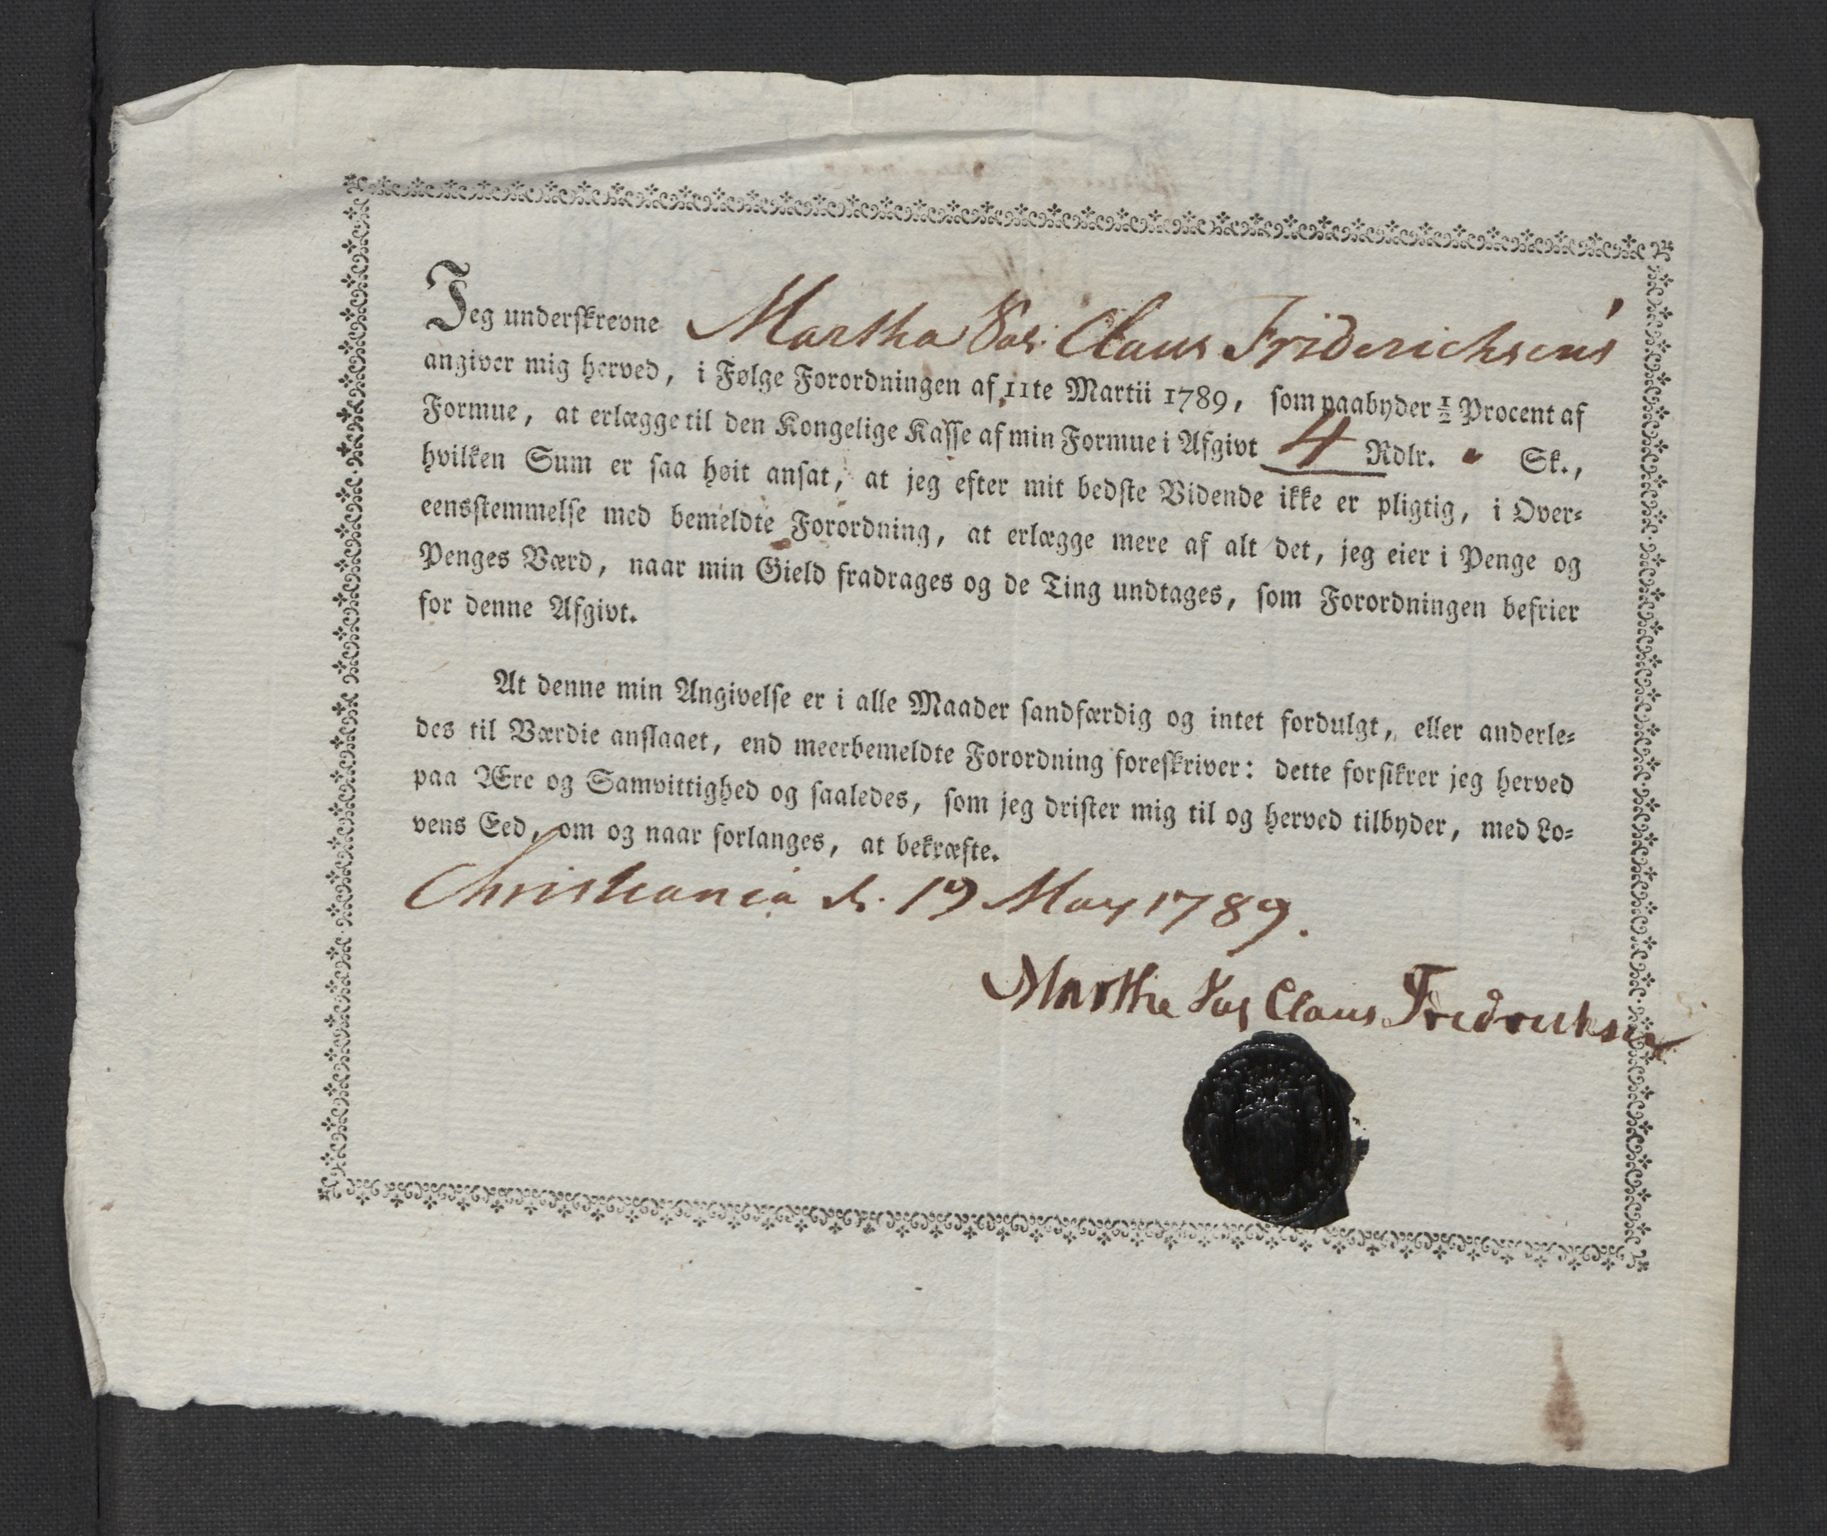 Jeg underskrevne Martha Sal: Claus Friderichsens
angiver mig herved, i Følge Forordningen af 11te Martii 1789, som paabyder ½ Procent af
Formue, at erlægge til den Kongelige Kasse af min Formue i Afgivt 4 Rdlr. " Sk.,
hvilken Sum er saa høit ansat, at jeg efter mit bedste Vidende ikke er pligtig, i Over-
eensstemmelse med bemeldte Forordning, at erlægge mere af alt det, jeg eier i Penge og
Penges Værd, naar min Gield fradrages og de Ting undtages, som Forordningen befrier
for denne Afgivt.
At denne min Angivelse er i alle Maader sandfærdig og intet fordulgt, eller anderle-
des til Værdie anslaaet, end meerbemeldte Forordning foreskriver: dette forsikrer jeg herved
paa Ære og Samvittighed og saaledes, som jeg drister mig til og herved tilbyder, med Lo-
vens Eed, om og naar forlanges, at bekræfte.
Christiania d. 19 May 1789.
Marthe Sal Claus Fredrichsen